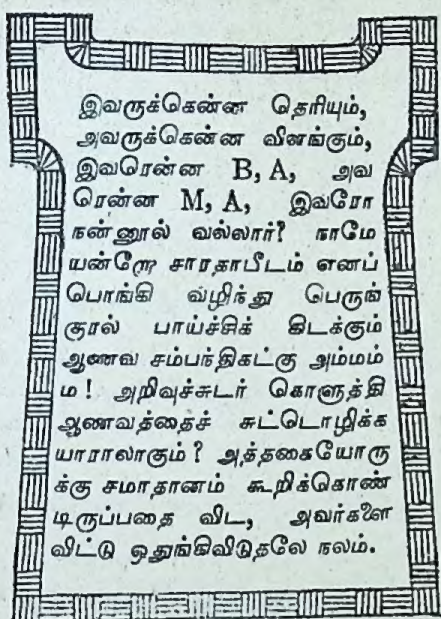 இவருக்கென்ன தெரியும்,
அவருக்கென்ன விளங்கும்,
இவரென்ன B, A, அவ
ரென்ன M, A, இவரோ
நன்னூல் வல்லார்? நாமே
யன்றோ சாரதாபீடம் எனப்
பொங்கி வழிந்து பெருங்
குரல் பாய்ச்சிக் கிடக்கும்
ஆணவ சம்பந்திகட்கு அம்மம்
ம! அறிவுச்சுடர் கொளுத்தி
ஆணவத்தைச் சுட்டொழிக்க
யாராலாகும்? அத்தகையோரு
க்கு சமாதானம் கூறிக்கொண்
டிருப்பதை விட, அவர்களை
விட்டு ஒதுங்கிவிடுதலே நலம்.